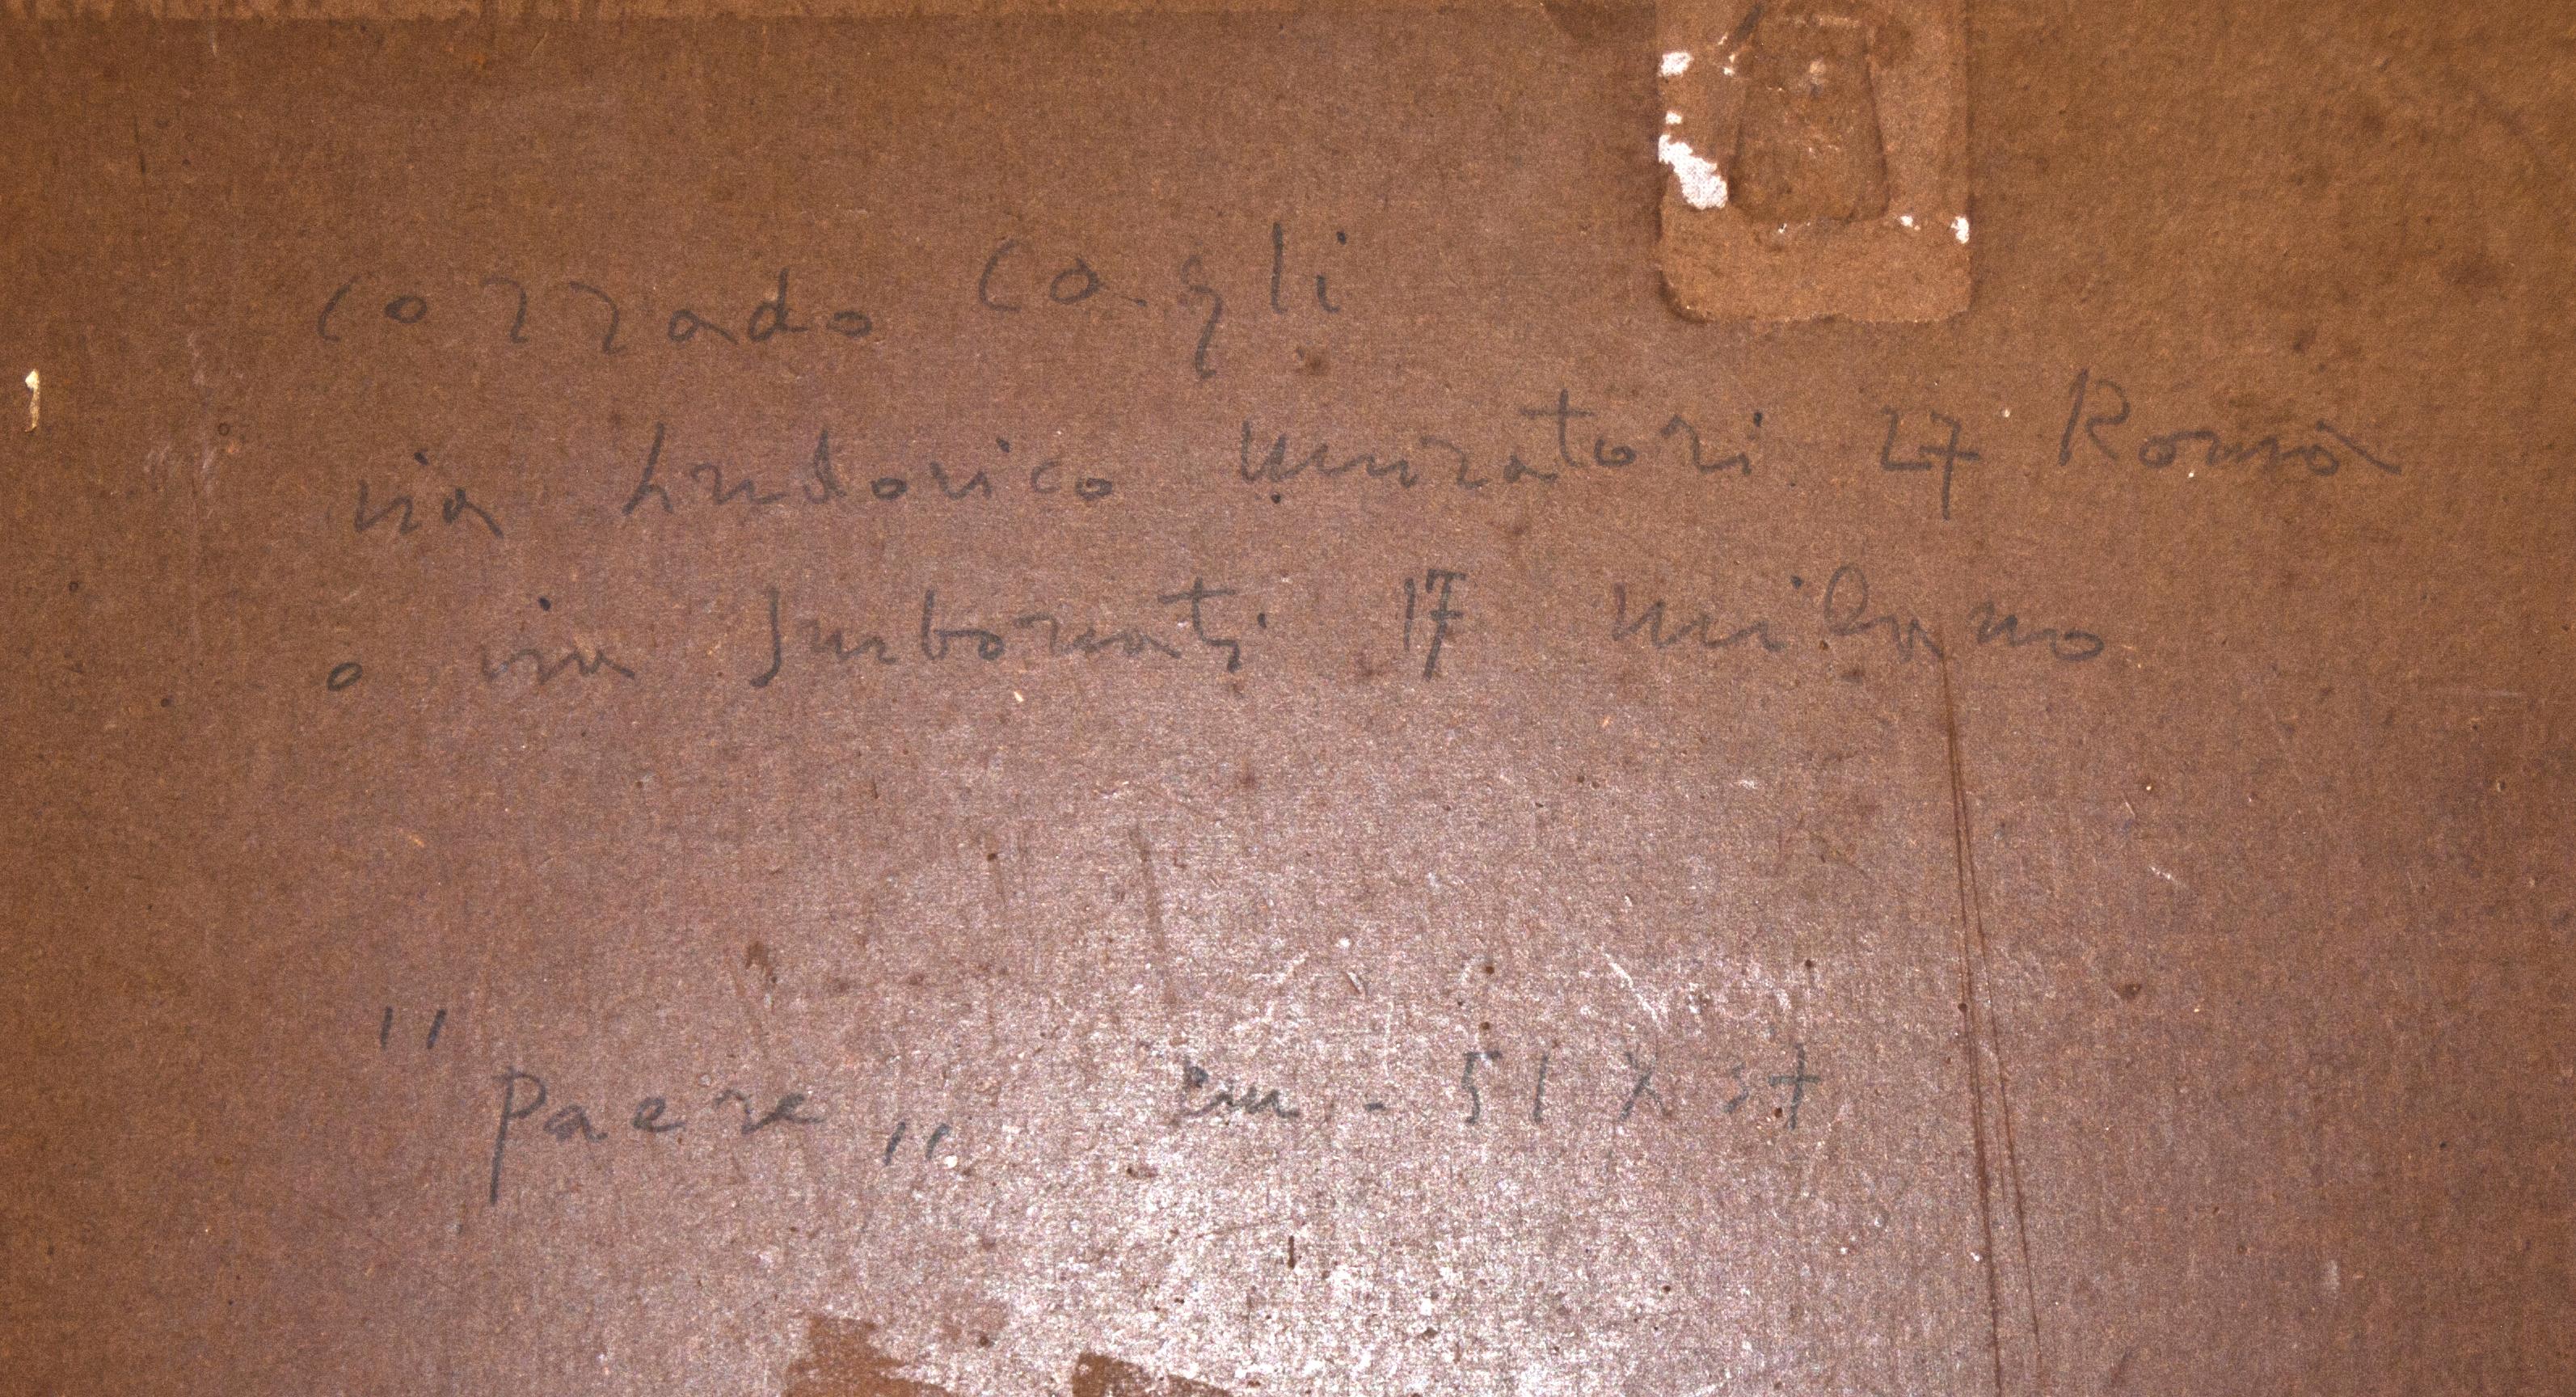 Corrado Cagli
via Ludovico Muratori 27 Roma
o via 17 Milano
" Paese „ cm - 51 x 37